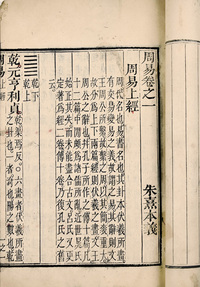 周易卷之一
朱熹本義
周易上經
周代名也易書名也其卦本伏羲所畫
有交易變易之義故謂之易其辭則文
王周公所繫故繫之周以其簡袠重大
故分爲上下兩篇經則伏羲之畫文王
周公之辭也并孔子所作之傳十篇凡
十二篇中間頗爲諸儒所亂近世晁氏
始正其失而未能盡合古文呂氏又更
定著爲經二卷傳十卷乃復孔氏之舊
云
乾下
乾上
乾元亨利貞
乾渠焉反○六畫者伏羲所畫
之卦也一者奇也陽之數也乾
周易上經